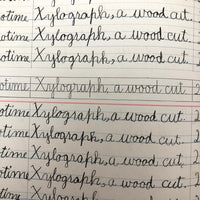 otime Xylograph, a wood cut.
otime Xylograph, a wood cut.
otime Xylograph, a wood cut.
otime Xylograph, a wood cut. 2
otime Xylograph, a wood cut. 2
otime Xylograph, a wood cut. 2
otime Xylograph, a wood cut. 2
otime Xylograph, a wood cut. 2